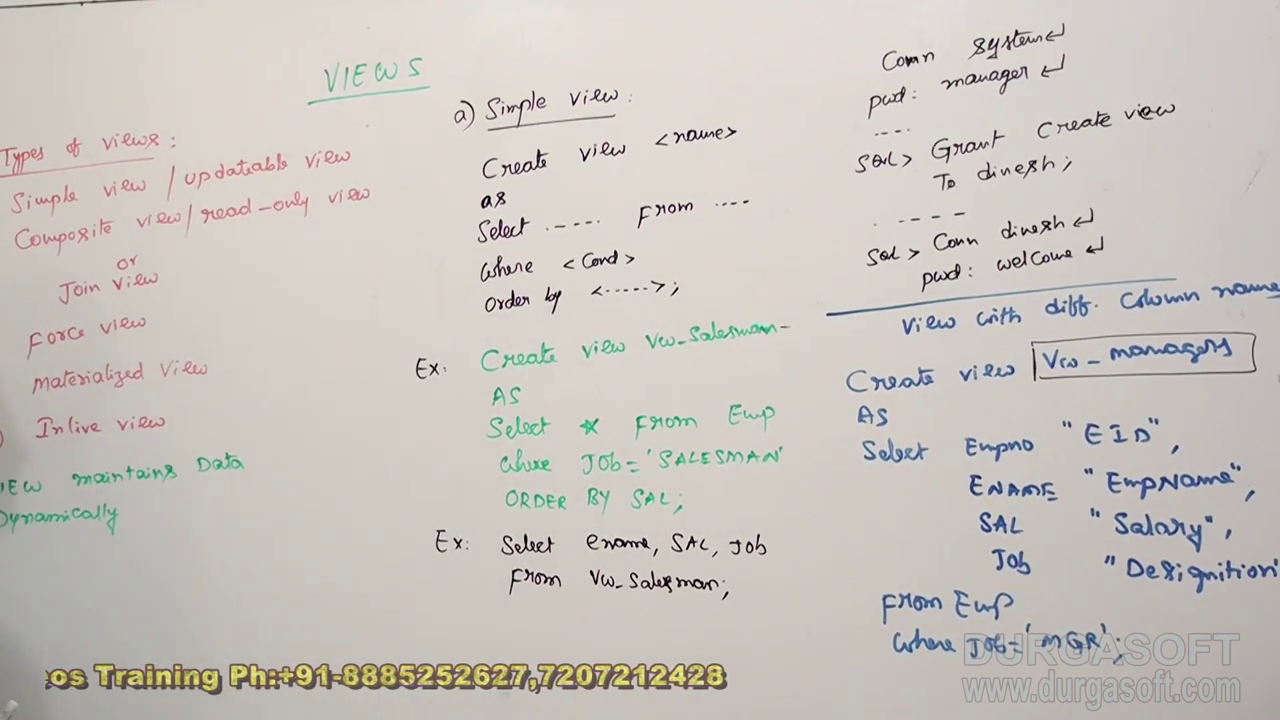 VIEWS
Types of views :
Simple view / updatable view
Composite view / read-only view
or
Join view
Force view
Materialized view
Inlive view
Maintains Data
Dynamically
a) Simple view :
Create view <name>
as
Select ..... From ....
where <Cond>
order by <.....>;
Ex: Create view Vw_Salesman-
AS
Select * From Emp
where JOb='SALESMAN'
ORDER BY SAL;
Ex: Select ename, SAL, Job
From Vw_Salesman;
Conn System↵
pwd: manager ↵
....
SQL> Grant Create view
To dinesh;
.....
SQL> Conn dinesh ↵
pwd: welcome ↵
View with diff. Column name
Create view Vw_managers
AS
Select Empno "EID",
ENAME "EmpName",
SAL "Salary",
Job "Designition
From Emp
where Job='MGR';
DURGASOFT
www.durgasoft.com
eos Training Ph:+91-8885252627,7207212428